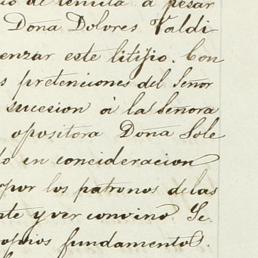 de remita a pesar
Dona Dolores Valdi-
enzar este litijio. Con
s pretenciones del Señor
sucesion à la Señora
opositora Dona Sole
do en concideracion
por los patronos de las
te y ver convino. Se
opios fundamentos.